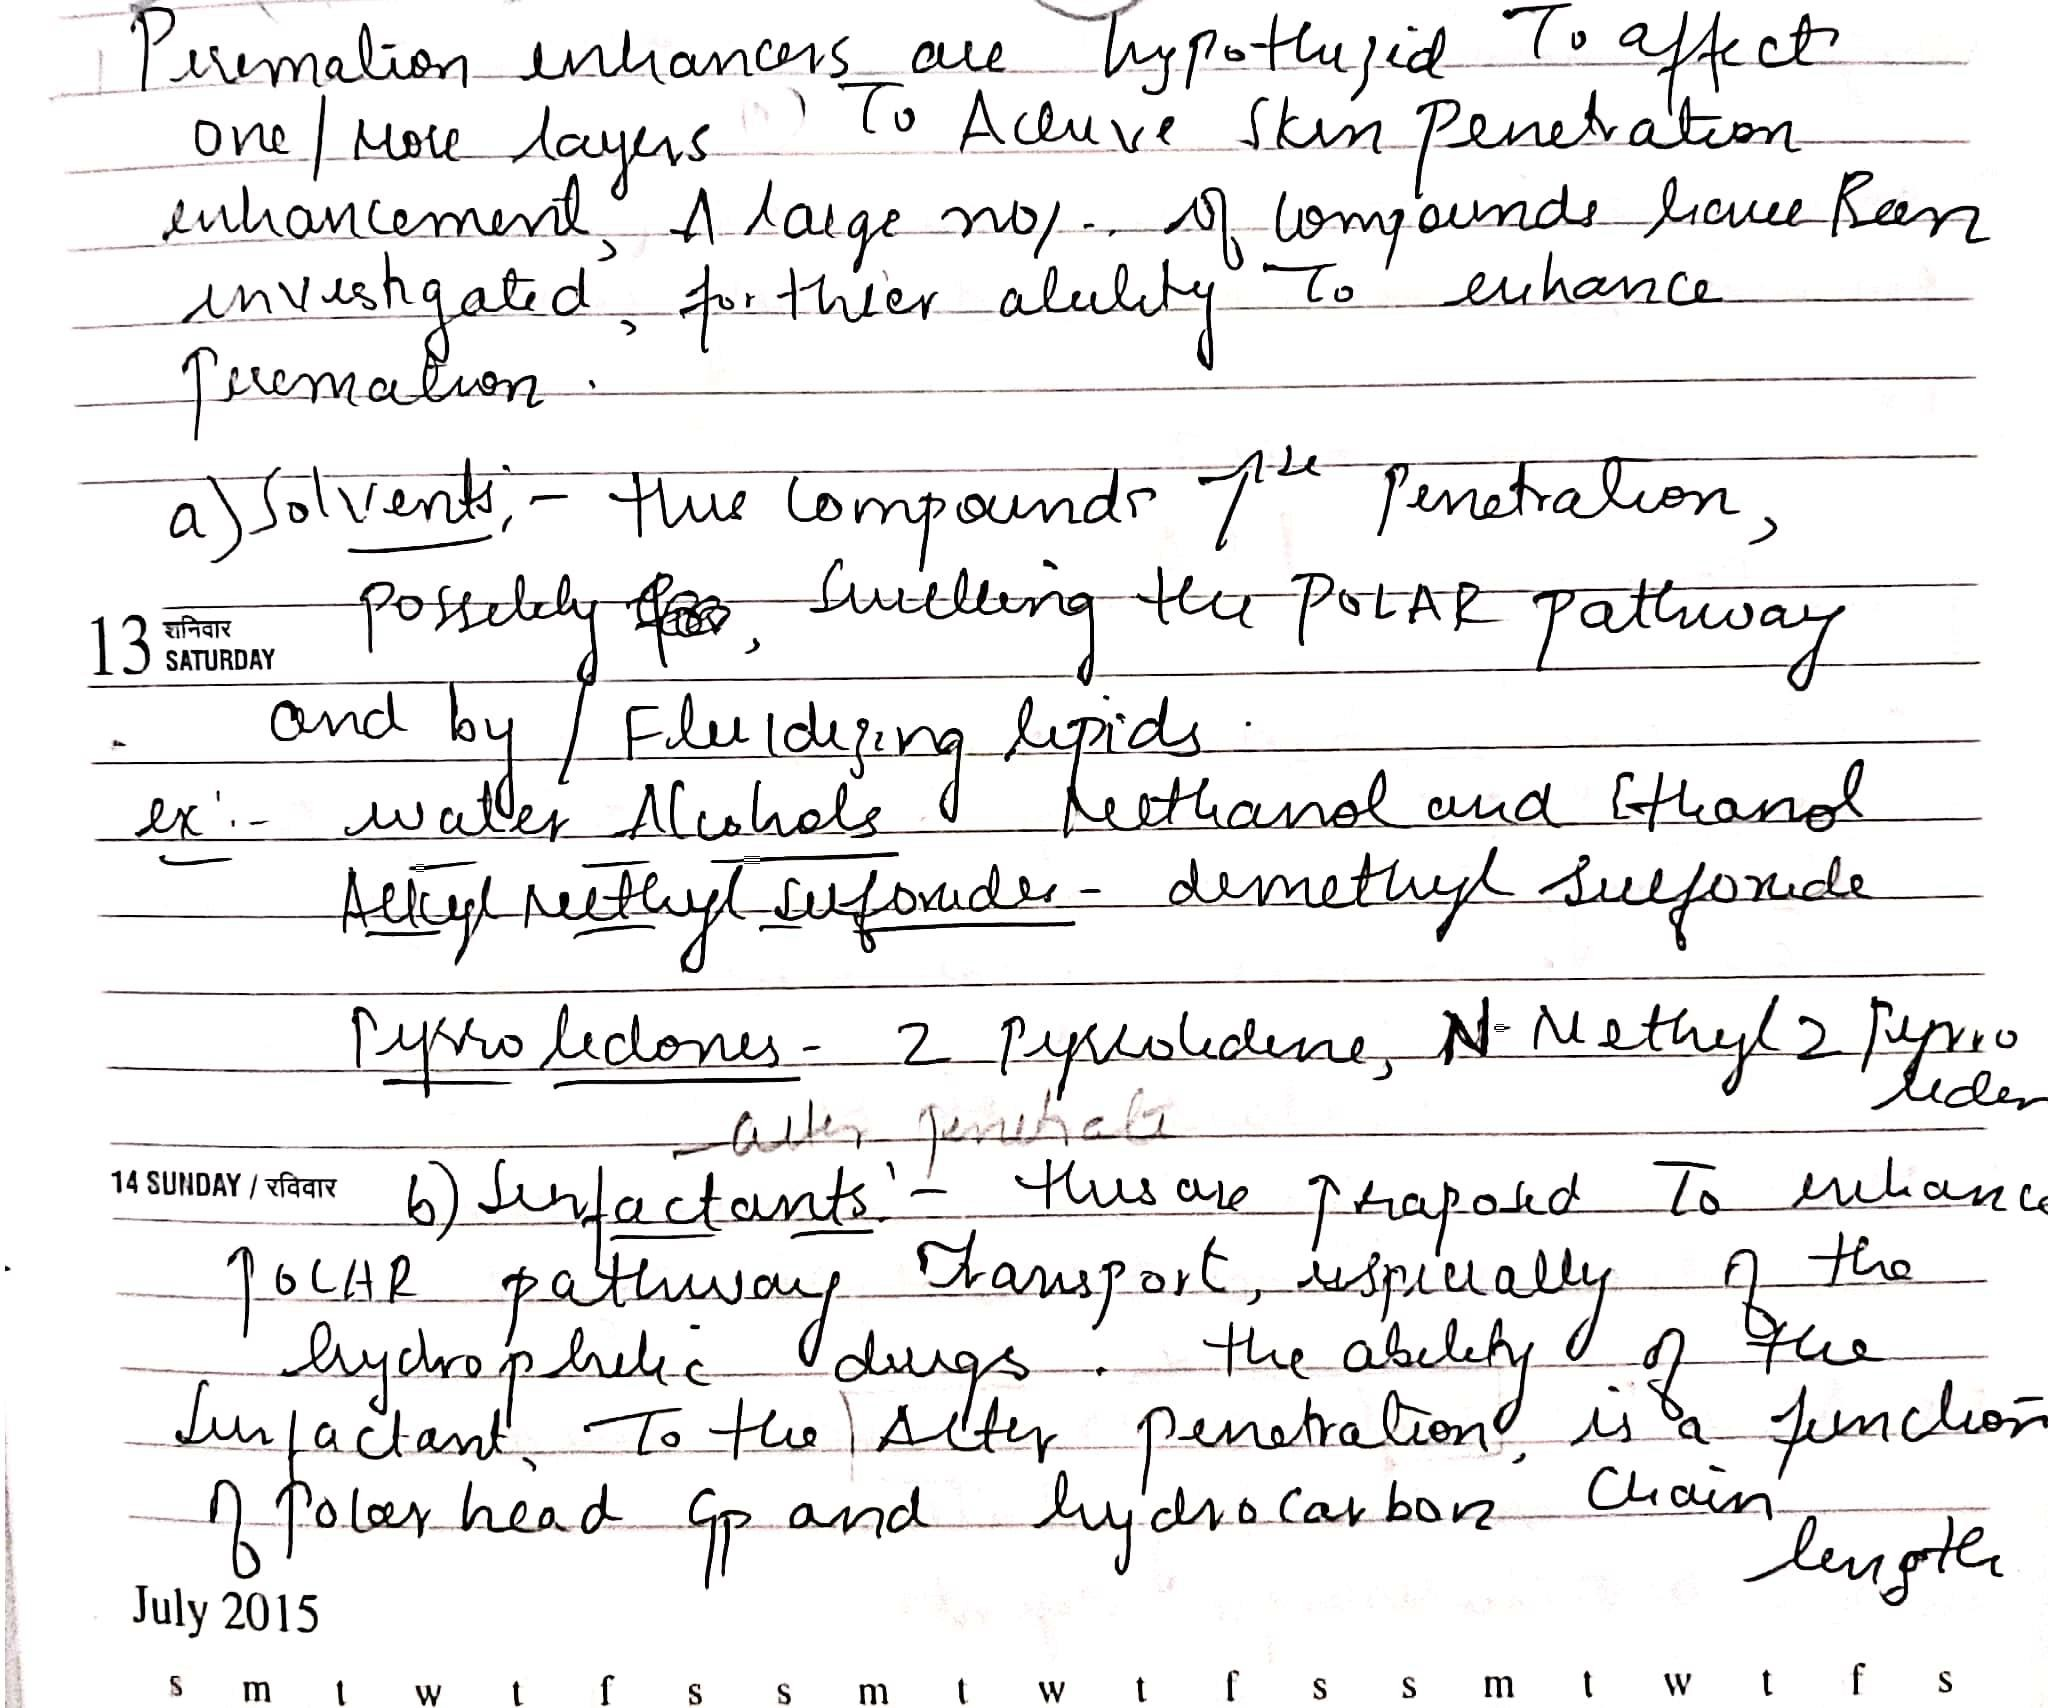 Peremation enhancers are hypothezid To affect
one / More layers To Acheive Skin Penetration
enhancement, A large no/-. of Compounds have Been
investigated, for thier ability To enhance
Peremation.
a) Solvents:- this Compounds ↑se Penetration,
possibly, Swelling the POLAR pathway
13 शनिवार SATURDAY
and by / Fluidizing lipids.
ex:- water Alcohols Methanol and Ethanol
Alkyl Methyl sufoxides - dimethyl sulfoxide
Pyrrolidones - 2 Pyrrolidine, N- Methyl 2 Pyrro
liden
alter penetrate
14 SUNDAY / रविवार
b) Surfactants:- this are praposed To enhance
POLAR pathway Transport, especially of the
hydrophilic drugs. the ability of the
Surfactant, To the Alter penetration, is a function
of Polar head Gp and hydrocarbon Chain
length
July 2015
s m t w t f s s m t w t f s s m t w t f s